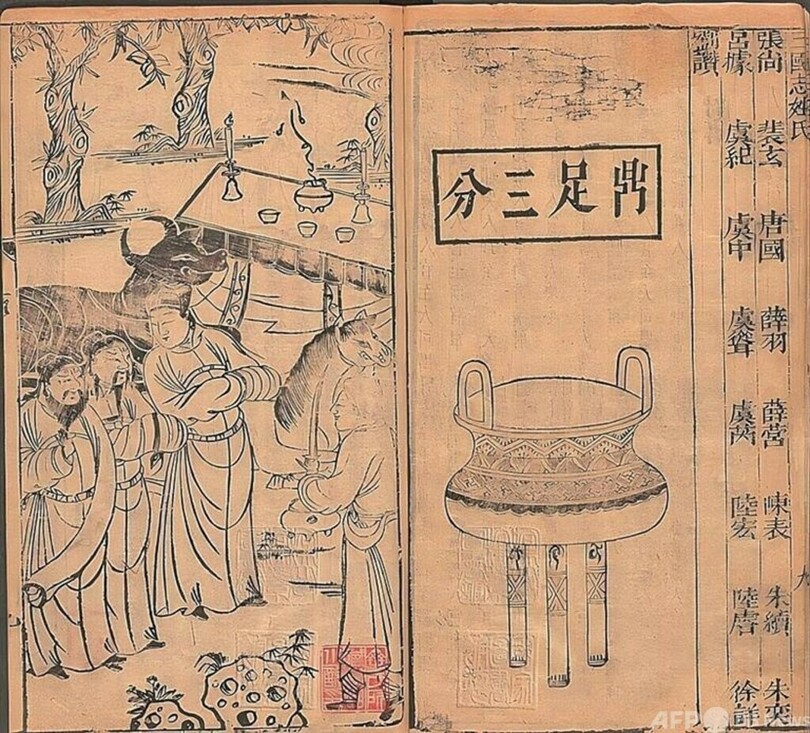 三國志姓氏
張尚 裴玄 唐國 薛羽 薛營 陳表 朱續 朱
呂據 虞紀 虞中 虞聳 虞 陸宏 陸 徐詳
劉讚
鼎足三分
AFPBB News